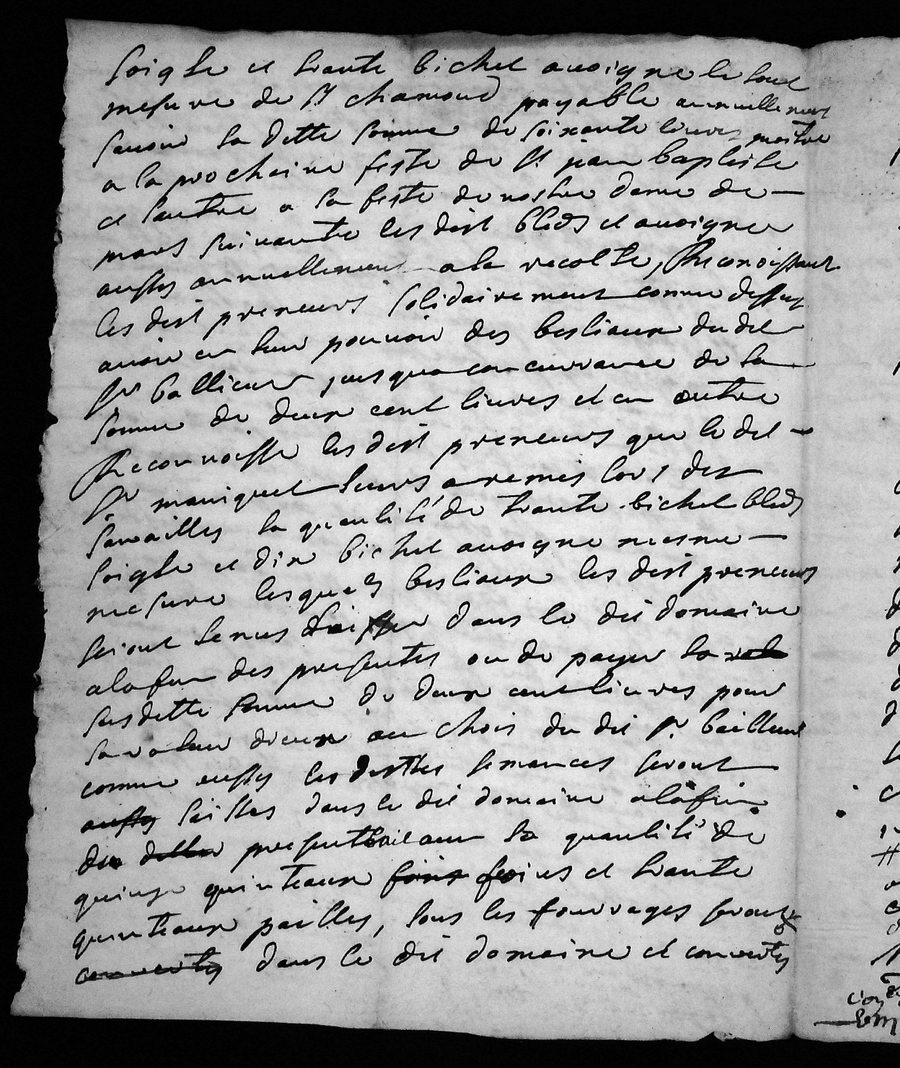 soigle et trante bichet avoigne le tout
mesure de St chamond payable annuellement
savoir la ditte somme de soixante livres moitie
a la prochaine feste de St jean baptiste
et l'autre a la feste de nostre dame de
mars suivante les dist bleds et avoigne
aussy annuellement a la recolte, Reconoissant
les dist preneurs solidairement comme dessus
avoir en leur pouvoir des bestiaux du dit
Sr bailleur jusqua concurrance de la
somme de deux cent livres et en outre
Reconnoisse les dist preneurs que le dit
Sr maniquet leurs a remis lors des
semailles la quantité de trante bichet bleds
soigle et dix bichet avoigne mesme
mesure lesquels bestiaux les dist preneurs
seront tenus laisser dans le dit domaine
a la fin des presentes ou de payer la
susditte somme de deux cent livres pour
la valeur diceux au choix du dit Sr bailleur
comme aussy les dittes semances seront
aussy laisses dans le dit domaine a la fin
presente bail avec la quantité de
quinze quinteaux foins et trante
quinteaux pailles, tous les fourrages seront
converty dans le dit domaine et converty